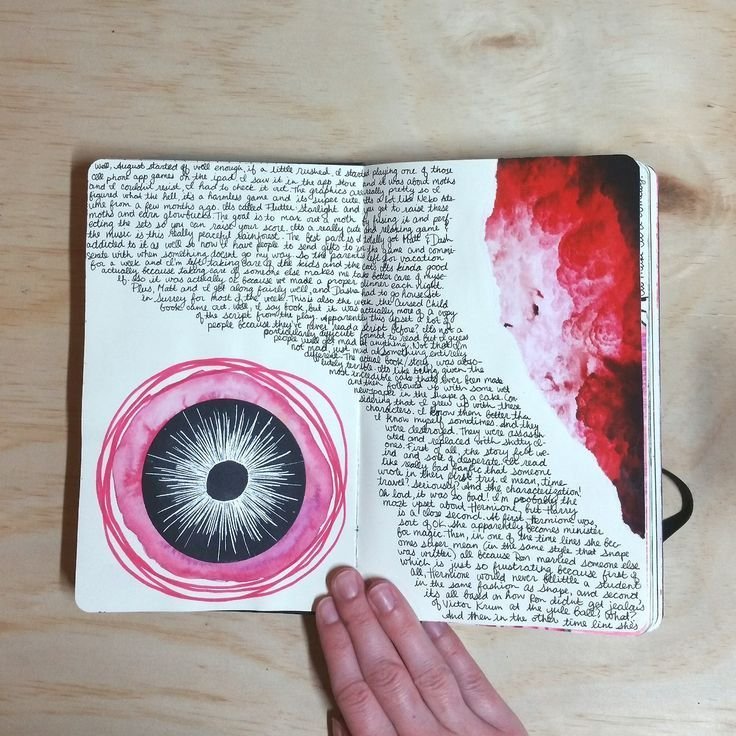 Well, August started off well enough, if a little rushed. I started playing one of those
cell phone app games on the ipad. I saw it in the app store and it was about moths
and I couldn't resist, I had to check it out. The graphics are really pretty so I
figured what the hell, its a harmless game and its super cute. Its a lot like Neko Ats-
ume from a few months ago. Its called Flutter Starlight and you get to raise these
moths and earn glowbucks. The goal is to max out a moth by fusing it and perf-
ecting the sets so you can raise your score. Its a really cute and relaxing game &
the music is this really peaceful rainforest. The best part is I totally got Matt & Dash
addicted to it as well so now I have people to send gifts to in the game and commi-
serate with when something doesnt go my way. So the parents left for vacation
for a week and I'm left taking care of the kids and the cats. Its kinda good
actually because taking care of someone else makes me take better care of myse-
lf. So it was actually ok because we made a proper dinner each night.
Plus, Matt and I get along fairly well and Dasha had to go housesit
in Surrey for most of the week. This is also the week the Cursed Child
book came out. Well, I say book, but it was actually more of a copy
of the script from the play. Apparently this upset a lot of
people because they've never read a script before? Its not a
particularly difficult format to read but I guess
people will get mad at anything. Not that I'm
not mad, just mad at something entirely
different. The actual book/story was abso-
lutely terrible. Its like being given the
most incredible cake thats ever been made
and then followed up with some wet
newspaper in the shape of a cake. Con
sidering that I grew up with these
characters. I know them better than
I know myself sometimes. And they
were destroyed. They were assassin
ated and replaced with shitty cl-
ones. First of all, the story felt we-
ird and sort of desperate. It read
like really bad fanfic that someone
wrote in their first try. I mean, time
travel? Seriously? And the characterization!
Oh lord, it was so bad! I'm probably the
most upset about Hermione, but Harry
is a close second. At first Hermione was,
sort of OK. She apparently becomes minister
for magic. Then, in one of the time lines she bec-
omes super mean (in the same style that Snape
was written) all because Ron married someone else
which is just so frustrating because first of
all, Hermione would never belittle a student
in the same fashion as Snape, and second,
its all based on how Ron didnt get jealous
of Victor Krum at the yule ball? What?
And then in the other time line she's